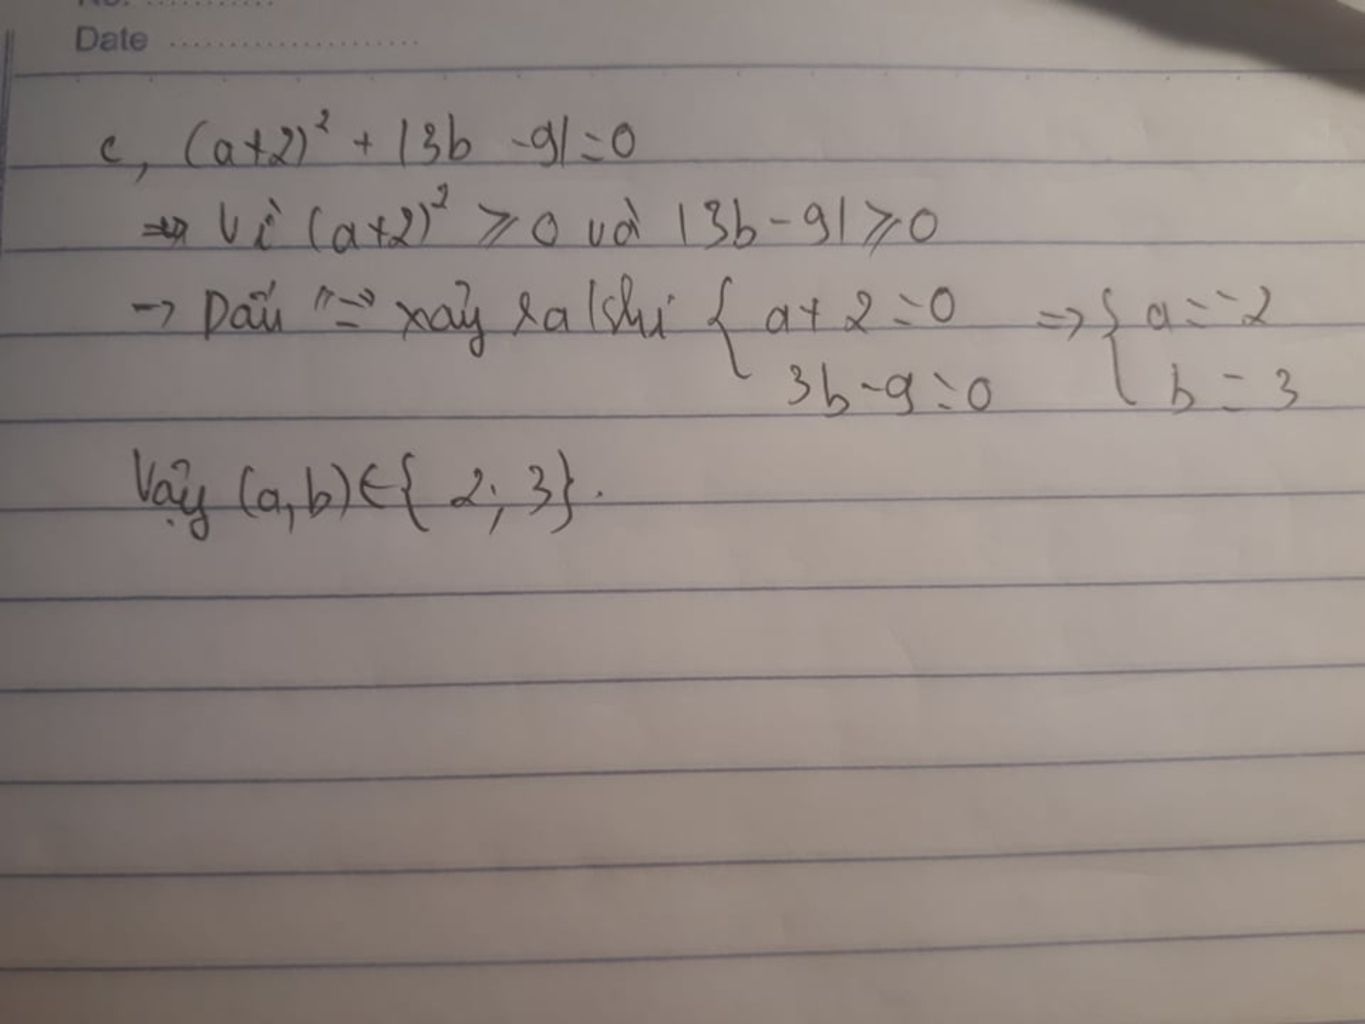 No. ............
Date .....................
c, (a+2)² + |3b - 9| = 0
Vì (a+2)² ⩾ 0 và |3b - 9| ⩾ 0
→ Dấu "=" xảy ra khi { a + 2 = 0 ⇒ { a = -2
3b - 9 = 0 b = 3
Vậy (a,b) ∈ { 2; 3}.